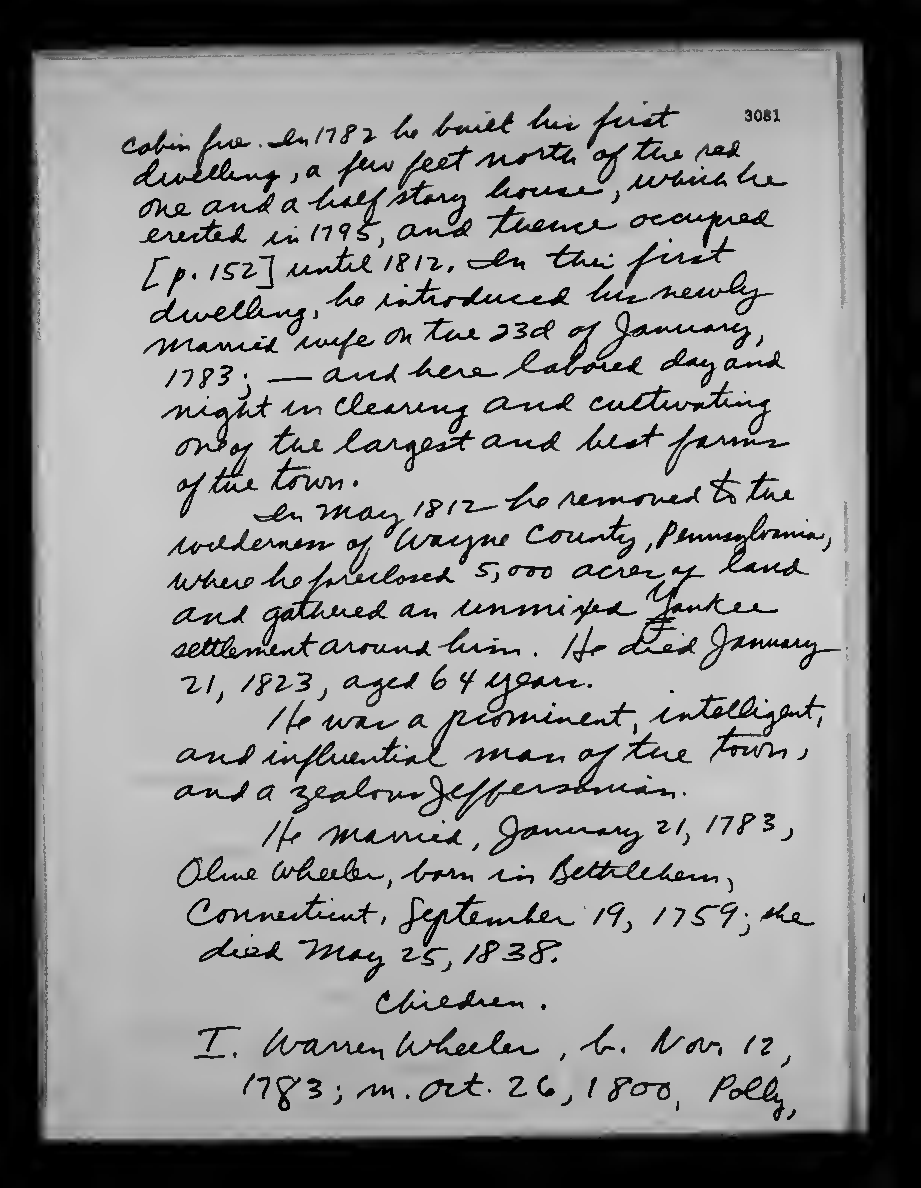 3081
cabin fire. In 1782 he built his first
dwelling, a few feet north of the red
one and a half story house, which he
erected in 1795, and thence occupied
[p. 152] until 1812. In this first
dwelling, he introduced his newly
married wife on the 23d of January,
1783; — and here labored day and
night in clearing and cultivating
one of the largest and best farms
of the town.
In May 1812 he removed to the
wilderness of Wayne County, Pennsylvania,
where he foreclosed 5,000 acres of land
and gathered an unmixed Yankee
settlement around him. He died January
21, 1823, aged 64 years.
He was a prominent, intelligent,
and influential man of the town,
and a zealous Jeffersonian.
He married, January 21, 1783,
Olive Wheeler, born in Bethlehem,
Connecticut, September 19, 1759; she
died May 25, 1838.
Children.
I. Warren Wheeler, b. Nov. 12,
1783; m. Oct. 26, 1800, Polly,